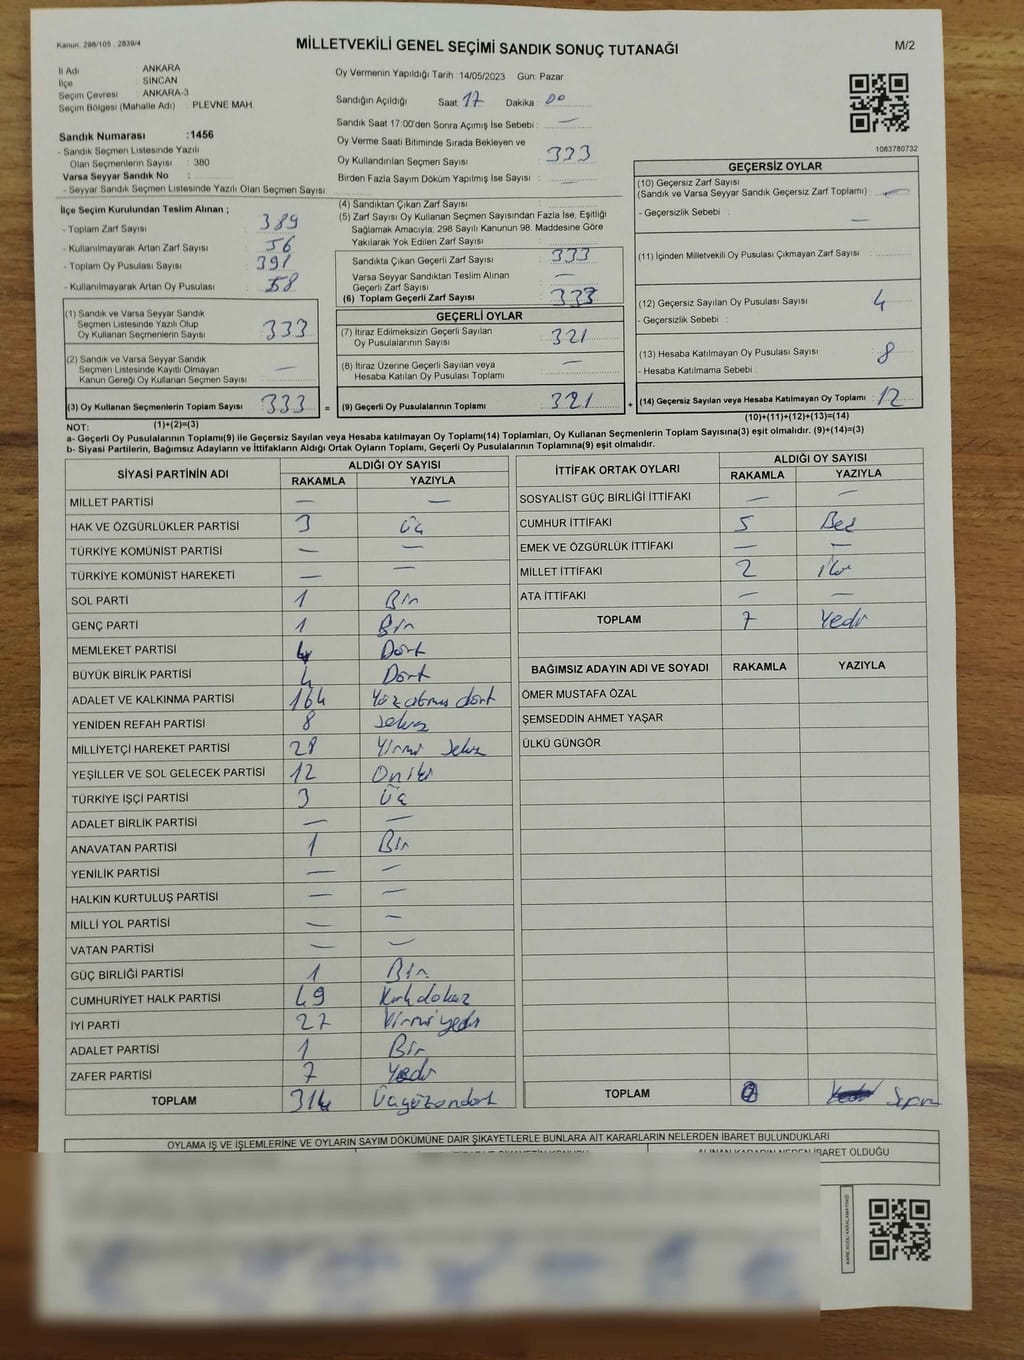 Kanun. 298/105 , 2839/4
MİLLETVEKİLİ GENEL SEÇİMİ SANDIK SONUÇ TUTANAĞI
M/2
İl Adı : ANKARA
İlçe : SİNCAN
Seçim Çevresi : ANKARA-3
Seçim Bölgesi (Mahalle Adı) : PLEVNE MAH.
Sandık Numarası :1456
- Sandık Seçmen Listesinde Yazılı
Olan Seçmenlerin Sayısı : 380
Varsa Seyyar Sandık No :
- Seyyar Sandık Seçmen Listesinde Yazılı Olan Seçmen Sayısı :
Oy Vermenin Yapıldığı Tarih :14/05/2023 Gün: Pazar
Sandığın Açıldığı Saat: 17 Dakika : 00
Sandık Saat 17:00'den Sonra Açımış İse Sebebi : —
Oy Verme Saati Bitiminde Sırada Bekleyen ve
Oy Kullandırılan Seçmen Sayısı : 333
Birden Fazla Sayım Döküm Yapılmış İse Sayısı : —
1083780732
İlçe Seçim Kurulundan Teslim Alınan ;
- Toplam Zarf Sayısı : 389
- Kullanılmayarak Artan Zarf Sayısı : 56
- Toplam Oy Pusulası Sayısı : 391
- Kullanılmayarak Artan Oy Pusulası : 58
(1) Sandık ve Varsa Seyyar Sandık
Seçmen Listesinde Yazılı Olup
Oy Kullanan Seçmenlerin Sayısı : 333
(2) Sandık ve Varsa Seyyar Sandık
Seçmen Listesinde Kayıtlı Olmayan
Kanun Gereği Oy Kullanan Seçmen Sayısı : —
(3) Oy Kullanan Seçmenlerin Toplam Sayısı : 333
(4) Sandıktan Çıkan Zarf Sayısı :
(5) Zarf Sayısı Oy Kullanan Seçmen Sayısından Fazla İse, Eşitliği
Sağlamak Amacıyla, 298 Sayılı Kanunun 98. Maddesine Göre
Yakılarak Yok Edilen Zarf Sayısı :
Sandıkta Çıkan Geçerli Zarf Sayısı : 333
Varsa Seyyar Sandıktan Teslim Alınan
Geçerli Zarf Sayısı : —
(6) Toplam Geçerli Zarf Sayısı : 333
GEÇERLİ OYLAR
(7) İtiraz Edilmeksizin Geçerli Sayılan
Oy Pusulalarının Sayısı : 321
(8) İtiraz Üzerine Geçerli Sayılan veya
Hesaba Katılan Oy Pusulası Toplamı : —
= (9) Geçerli Oy Pusulalarının Toplamı : 321 +
GEÇERSİZ OYLAR
(10) Geçersiz Zarf Sayısı
(Sandık ve Varsa Seyyar Sandık Geçersiz Zarf Toplamı) : —
- Geçersizlik Sebebi : —
(11) İçinden Milletvekili Oy Pusulası Çıkmayan Zarf Sayısı :
(12) Geçersiz Sayılan Oy Pusulası Sayısı : 4
- Geçersizlik Sebebi :
(13) Hesaba Katılmayan Oy Pusulası Sayısı : 8
- Hesaba Katılmama Sebebi :
(14) Geçersiz Sayılan veya Hesaba Katılmayan Oy Toplamı : 12
NOT: (1)+(2)=(3) (10)+(11)+(12)+(13)=(14)
a- Geçerli Oy Pusulalarının Toplamı(9) ile Geçersiz Sayılan veya Hesaba katılmayan Oy Toplamı(14) Toplamları, Oy Kullanan Seçmenlerin Toplam Sayısına(3) eşit olmalıdır. (9)+(14)=(3)
b- Siyasi Partilerin, Bağımsız Adayların ve İttifakların Aldığı Ortak Oyların Toplamı, Geçerli Oy Pusulalarının Toplamına(9) eşit olmalıdır.
SİYASİ PARTİNİN ADI ALDIĞI OY SAYISI
RAKAMLA YAZIYLA
MİLLET PARTİSİ — —
HAK VE ÖZGÜRLÜKLER PARTİSİ 3 Üç
TÜRKİYE KOMÜNİST PARTİSİ — —
TÜRKİYE KOMÜNİST HAREKETİ — —
SOL PARTİ 1 Bir
GENÇ PARTİ 1 Bir
MEMLEKET PARTİSİ 4 Dört
BÜYÜK BİRLİK PARTİSİ 4 Dört
ADALET VE KALKINMA PARTİSİ 164 Yüzatmış dört
YENİDEN REFAH PARTİSİ 8 Sekiz
MİLLİYETÇİ HAREKET PARTİSİ 28 Yirmi Sekiz
YEŞİLLER VE SOL GELECEK PARTİSİ 12 Oniki
TÜRKİYE İŞÇİ PARTİSİ 3 Üç
ADALET BİRLİK PARTİSİ — —
ANAVATAN PARTİSİ 1 Bir
YENİLİK PARTİSİ — —
HALKIN KURTULUŞ PARTİSİ — —
MİLLİ YOL PARTİSİ — —
VATAN PARTİSİ — —
GÜÇ BİRLİĞİ PARTİSİ 1 Bir
CUMHURİYET HALK PARTİSİ 49 Kırkdokuz
İYİ PARTİ 27 Yirmiyedi
ADALET PARTİSİ 1 Bir
ZAFER PARTİSİ 7 Yedi
TOPLAM 314 Üçyüzondört
İTTİFAK ORTAK OYLARI ALDIĞI OY SAYISI
RAKAMLA YAZIYLA
SOSYALİST GÜÇ BİRLİĞİ İTTİFAKI — —
CUMHUR İTTİFAKI 5 Beş
EMEK VE ÖZGÜRLÜK İTTİFAKI — —
MİLLET İTTİFAKI 2 İki
ATA İTTİFAKI — —
TOPLAM 7 Yedi
BAĞIMSIZ ADAYIN ADI VE SOYADI RAKAMLA YAZIYLA
ÖMER MUSTAFA ÖZAL
ŞEMSEDDİN AHMET YAŞAR
ÜLKÜ GÜNGÖR
TOPLAM 0
OYLAMA İŞ VE İŞLEMLERİNE VE OYLARIN SAYIM DÖKÜMÜNE DAİR ŞİKAYETLERLE BUNLARA AİT KARARLARIN NELERDEN İBARET BULUNDUKLARI
ALINAN KARARIN NEDEN İBARET OLDUĞU